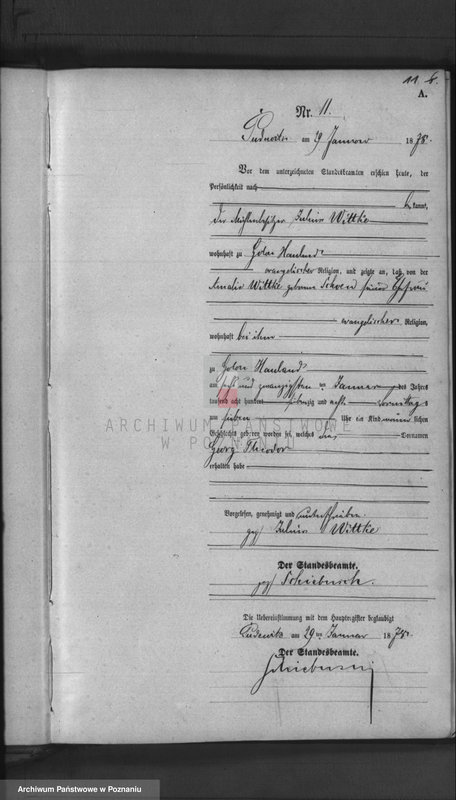 11. 6.
A.
Nr. 11.
Pudewitz am 29 Januar 1878.
Vor dem unterzeichneten Standesbeamten erschien heute, der
Persönlichkeit nach
kannt,
der Mühlenbesitzer Julius Wittke
wohnhaft zu Golon Hauland
evangelischer Religion, und zeigte an, daß von der
Amalie Wittke geborene Schoen seiner Ehefrau
evangelischer Religion,
wohnhaft bei ihm
zu Golon Hauland
am sechs und zwanzigsten ten Januar des Jahres
tausend acht hundert siebenzig und acht vormittags
um sieben Uhr ein Kind männlichen
Geschlechts geboren worden sei, welches Vornamen
Georg Theodor
erhalten habe
Vorgelesen, genehmigt und unterschrieben
gez. Julius Wittke
Der Standesbeamte.
gez.
Die Uebereinstimmung mit dem Hauptregister beglaubigt
Pudewitz am 29ten Januar 1878.
Der Standesbeamte.
ARCHIWUM PAŃSTWOWE
W POZNANIU
Archiwum Państwowe w Poznaniu